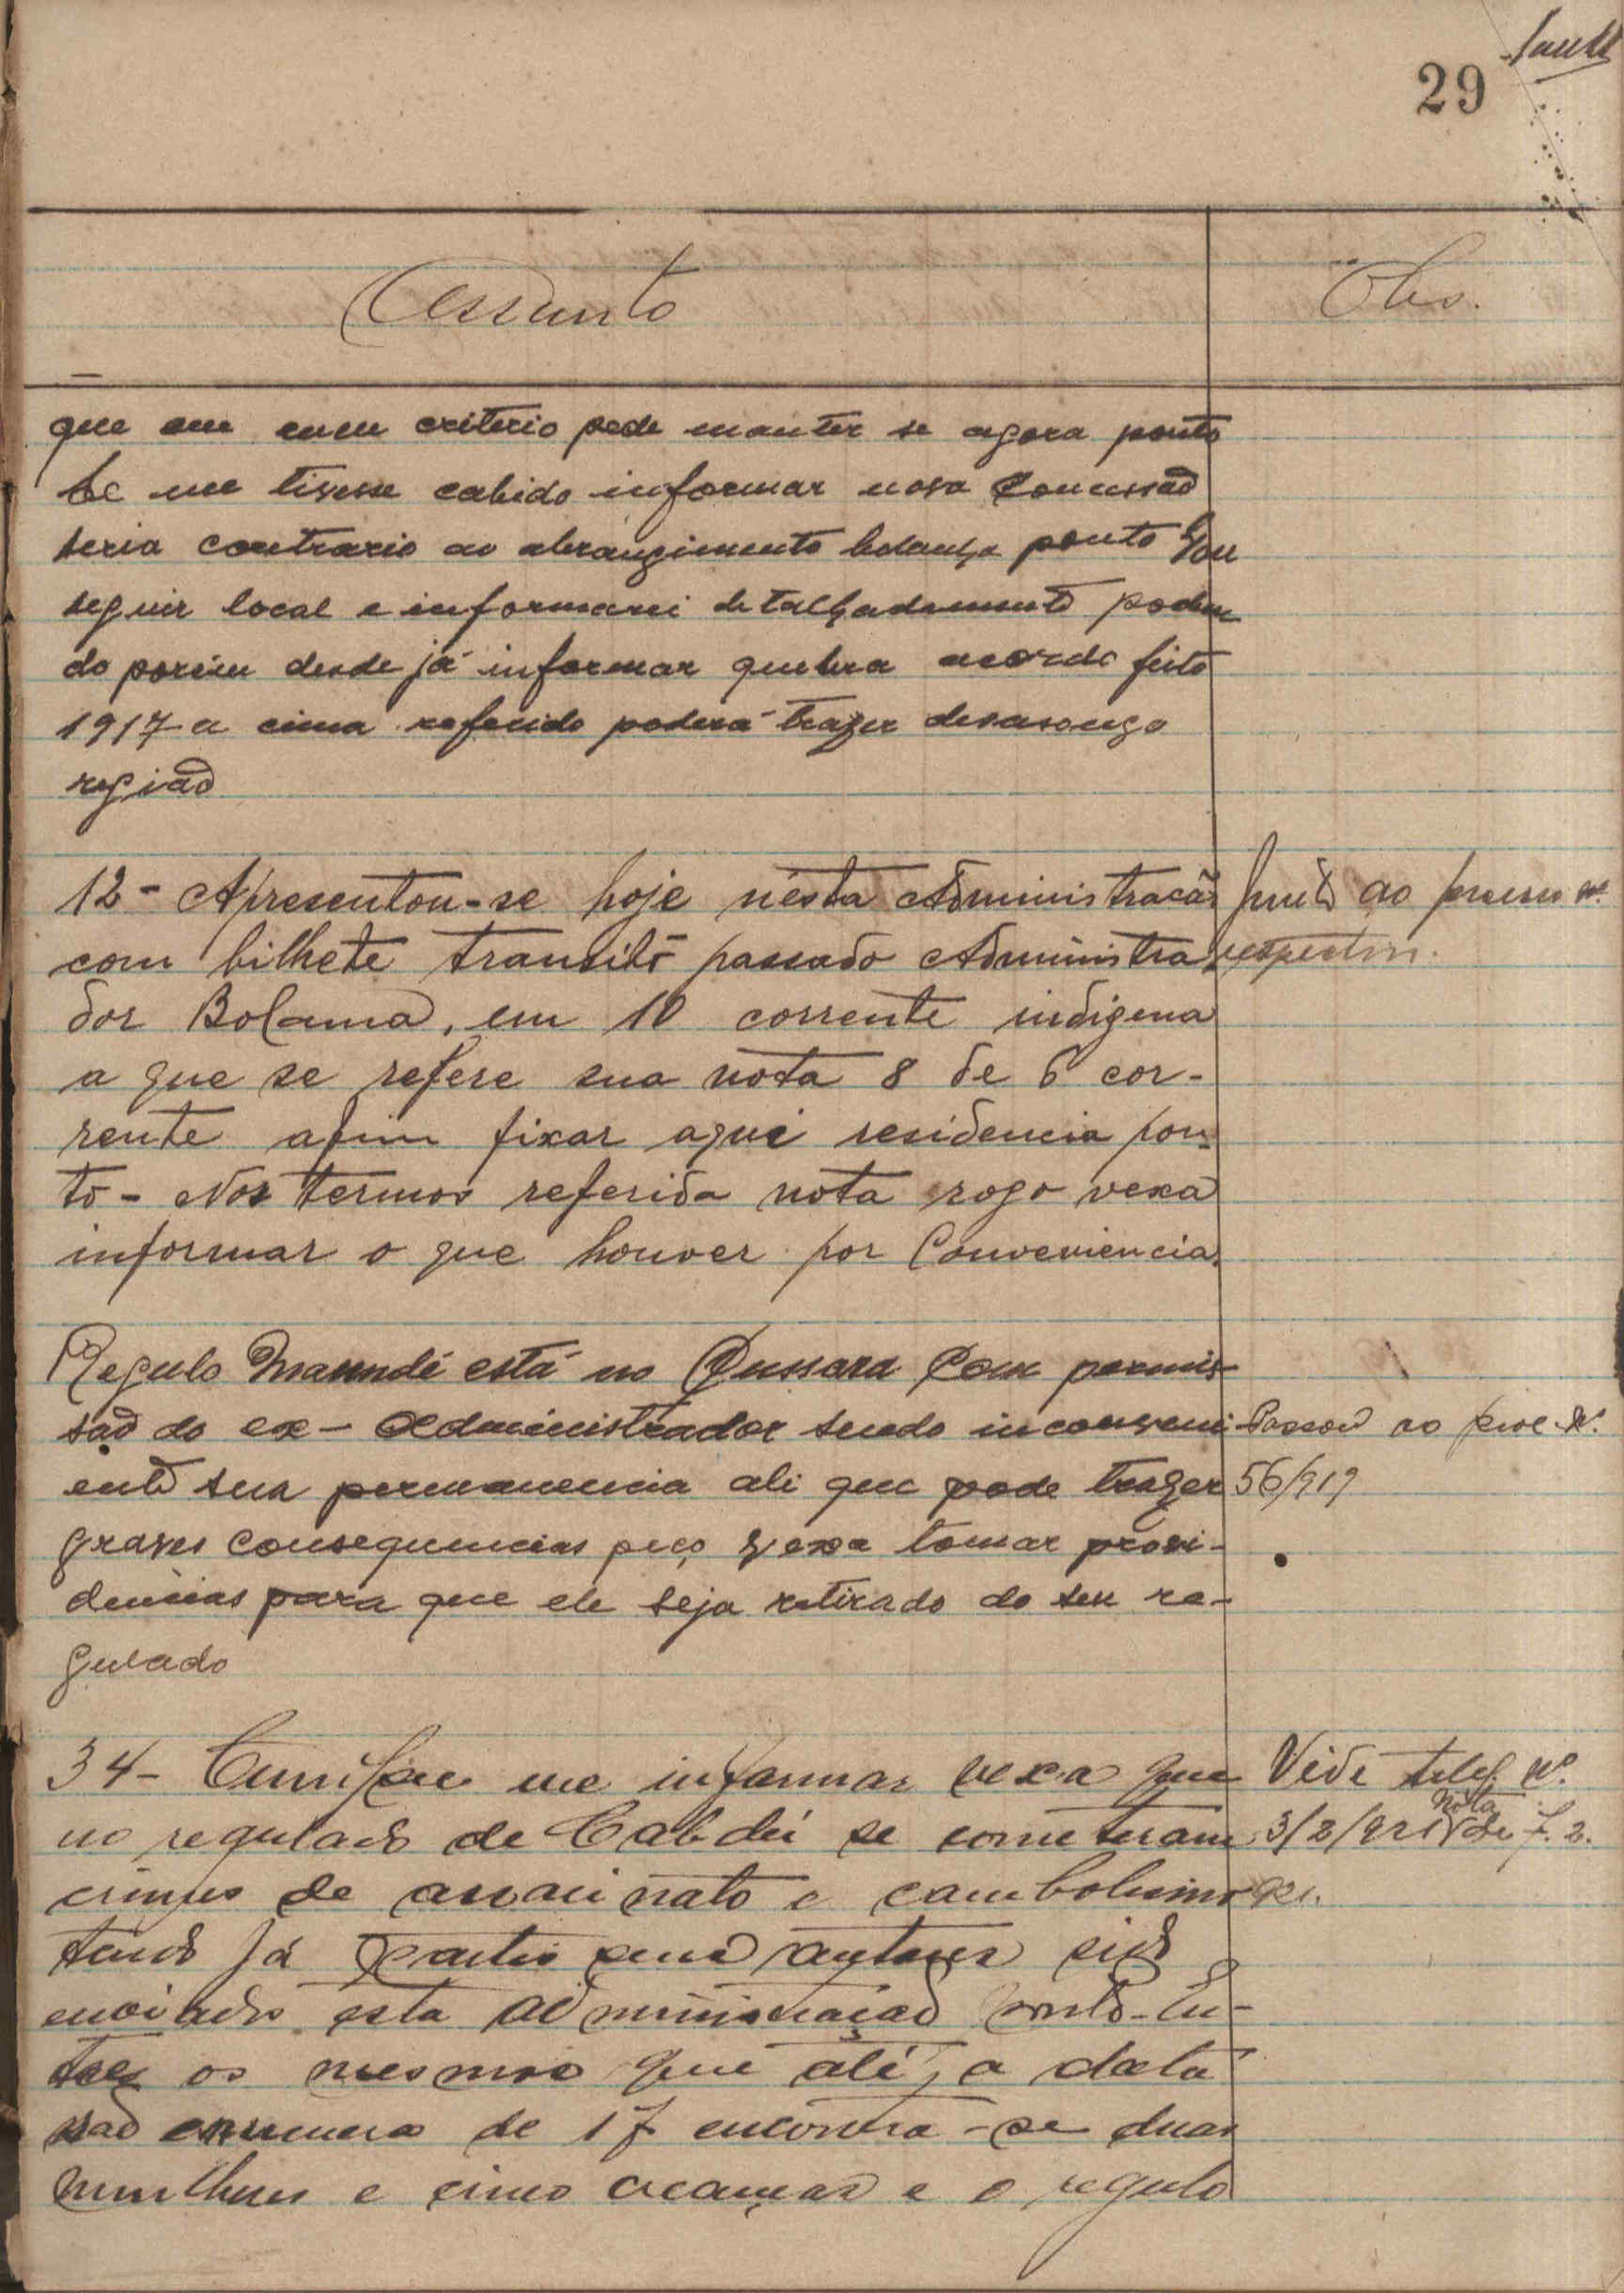 29
Assunto
Obs.
que em meu criterio pode manter se agora ponto
Se me tivesse cabido informar nova Concessão
seria contrario ao abrangimento balanta ponto Vou
seguir local e informarei detalhadamente poden
do porém desde já informar quebra acordo feito
1917 a cima referido poderá trazer desasocego
região
12 - Apresentou-se hoje nésta Administração
com bilhete transitó passado Administra
dor Bolama, em 10 corrente indigena
a que se refere sua nota 8 de 6 cor-
rente afim fixar aqui residencia pon-
to - Nos termos referida nota rogo vexa
informar o que houver por Conveniencia.
Junto ao processo nº
respectivo.
Regulo Mamudé está no Qussara Com permis
são do ex-Administrador sendo inconveni
ente sua permanencia ali que pode trazer
graves consequencias peço vexa tomar provi-
dencias para que ele seja retirado do seu re-
gulado
Passou ao proc. Nº.
56/919
34 - Cumpre me informar vexa que
no regulado de Cabdei se cometeram
crimes de assacinato e cambolismo
tendo já partes seus autores sido
enviados esta Administração ponto - En-
tres os mesmos que até, a data
são em numero de 17 encontra-se duas
mulheres e cinco creanças e o regulo
Vide teleg. Nº.
3/2/921 Nota de f. 2.
921.